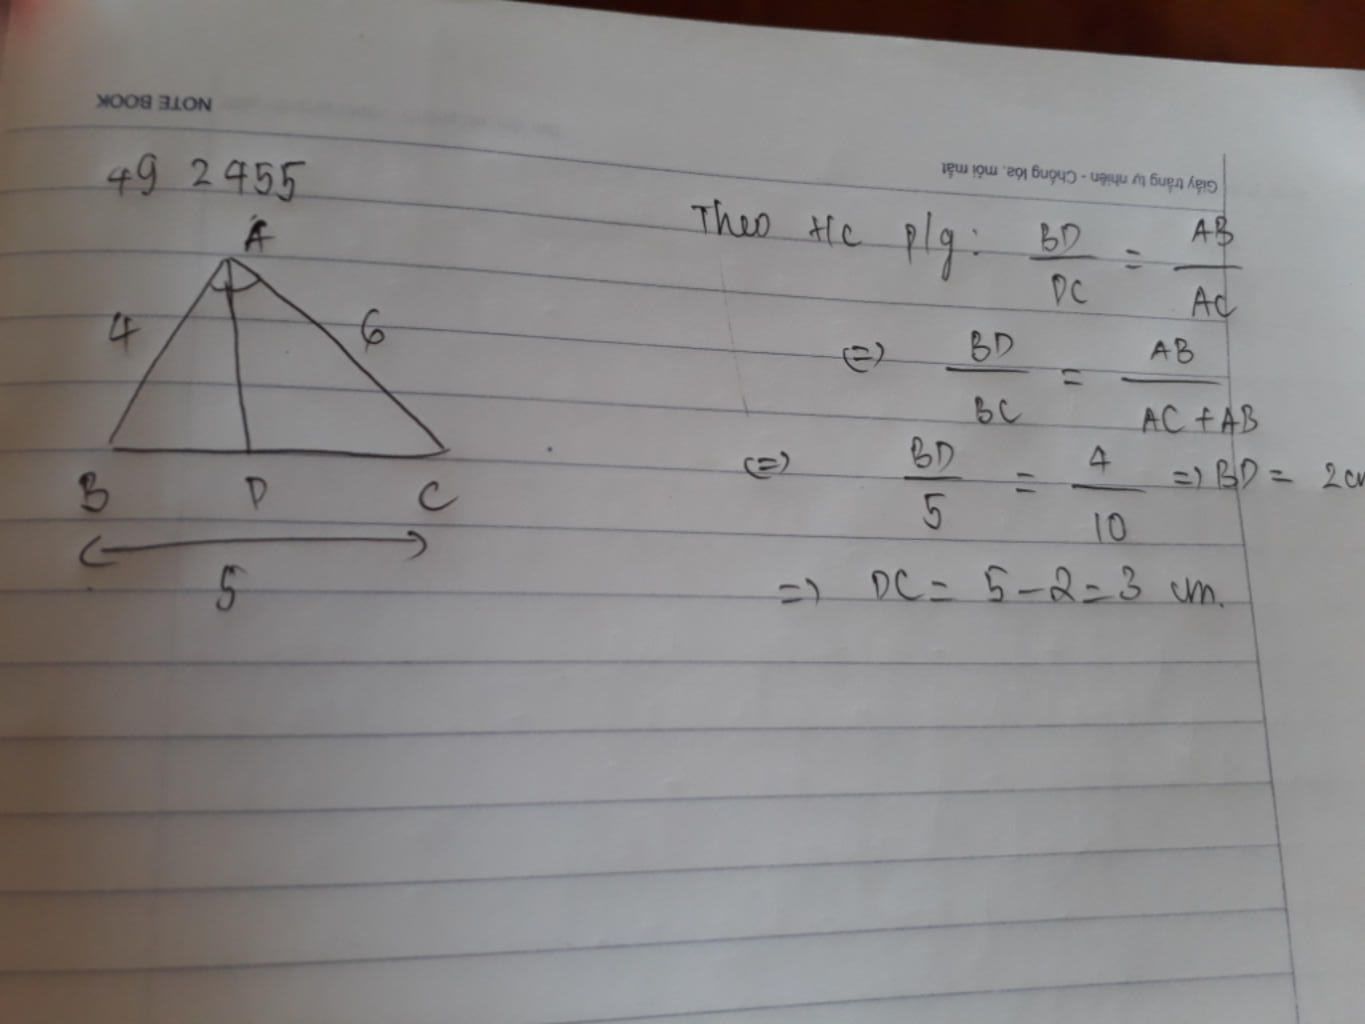 NOTE BOOK
Giấy trắng tự nhiên - Chống lóa, mỏi mắt
49 2455
A
4
6
B D C
5
Theo t/c p/g: BD/DC = AB/AC
(=) BD/BC = AB/AC + AB
(=) BD/5 = 4/10 => BD = 2cm
=> DC = 5 - 2 = 3 cm.